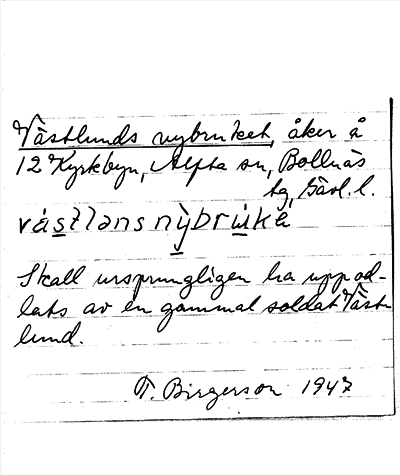 Västlunds nybruket, åker å
12 Kyrkbyn, Alfta sn, Bollnäs
tg, Gävl. l.
våstlənsnỳbrùkə
Skall ursprungligen ha uppod-
lats av en gammal soldat Väst-
lund.
T. Birgerson 1947